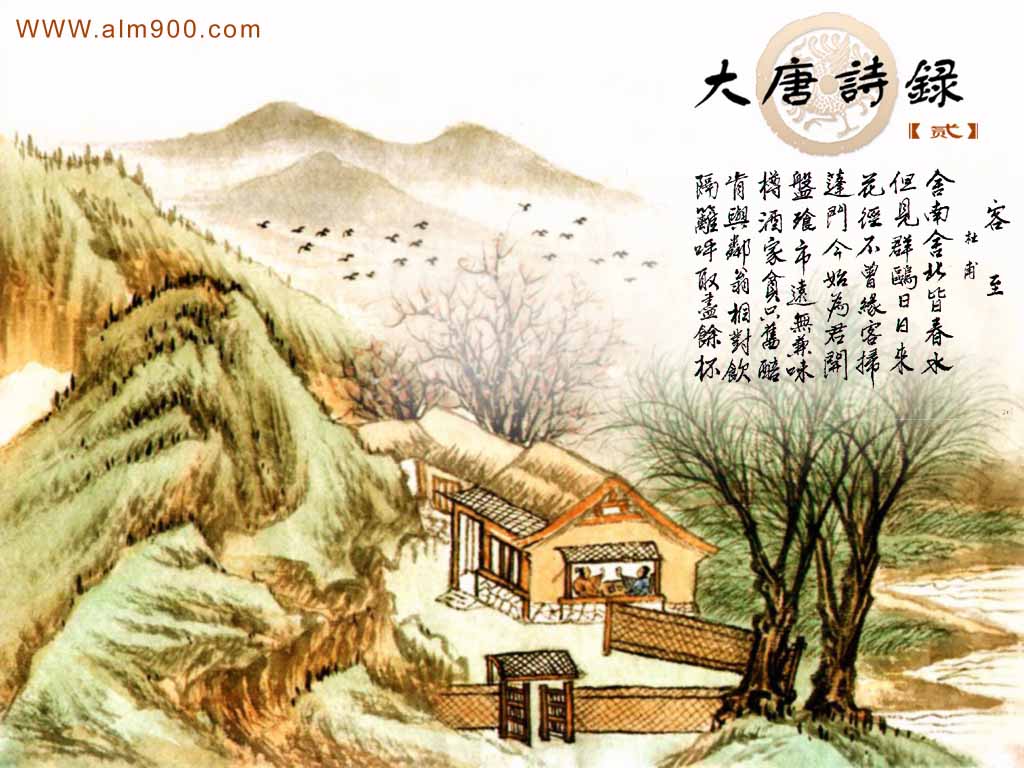 WWW.alm900.com
大唐詩録
【贰】
客至
杜甫
舍南舍北皆春水
但見群鷗日日來
花徑不曾緣客掃
蓬門今始為君開
盤飧市遠無兼味
樽酒家貧只舊醅
肯與鄰翁相對飲
隔籬呼取盡餘杯